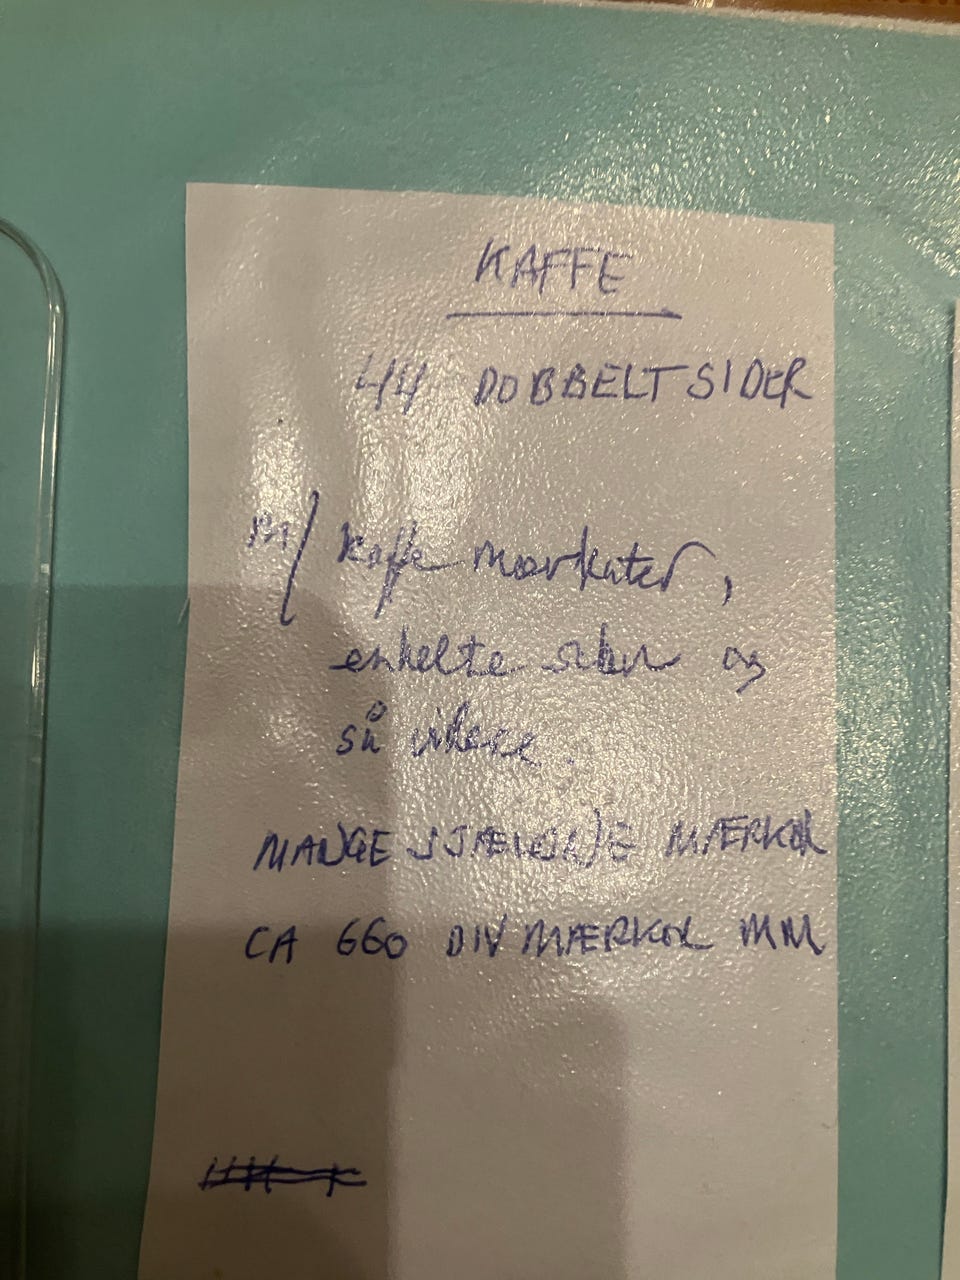 KAFFE
44 DOBBELTSIDER
M/ Kaffe mærkater,
enkelte sider og
så videre.
MANGE SJÆLDNE MÆRKER
CA 660 DIV MÆRKER MM